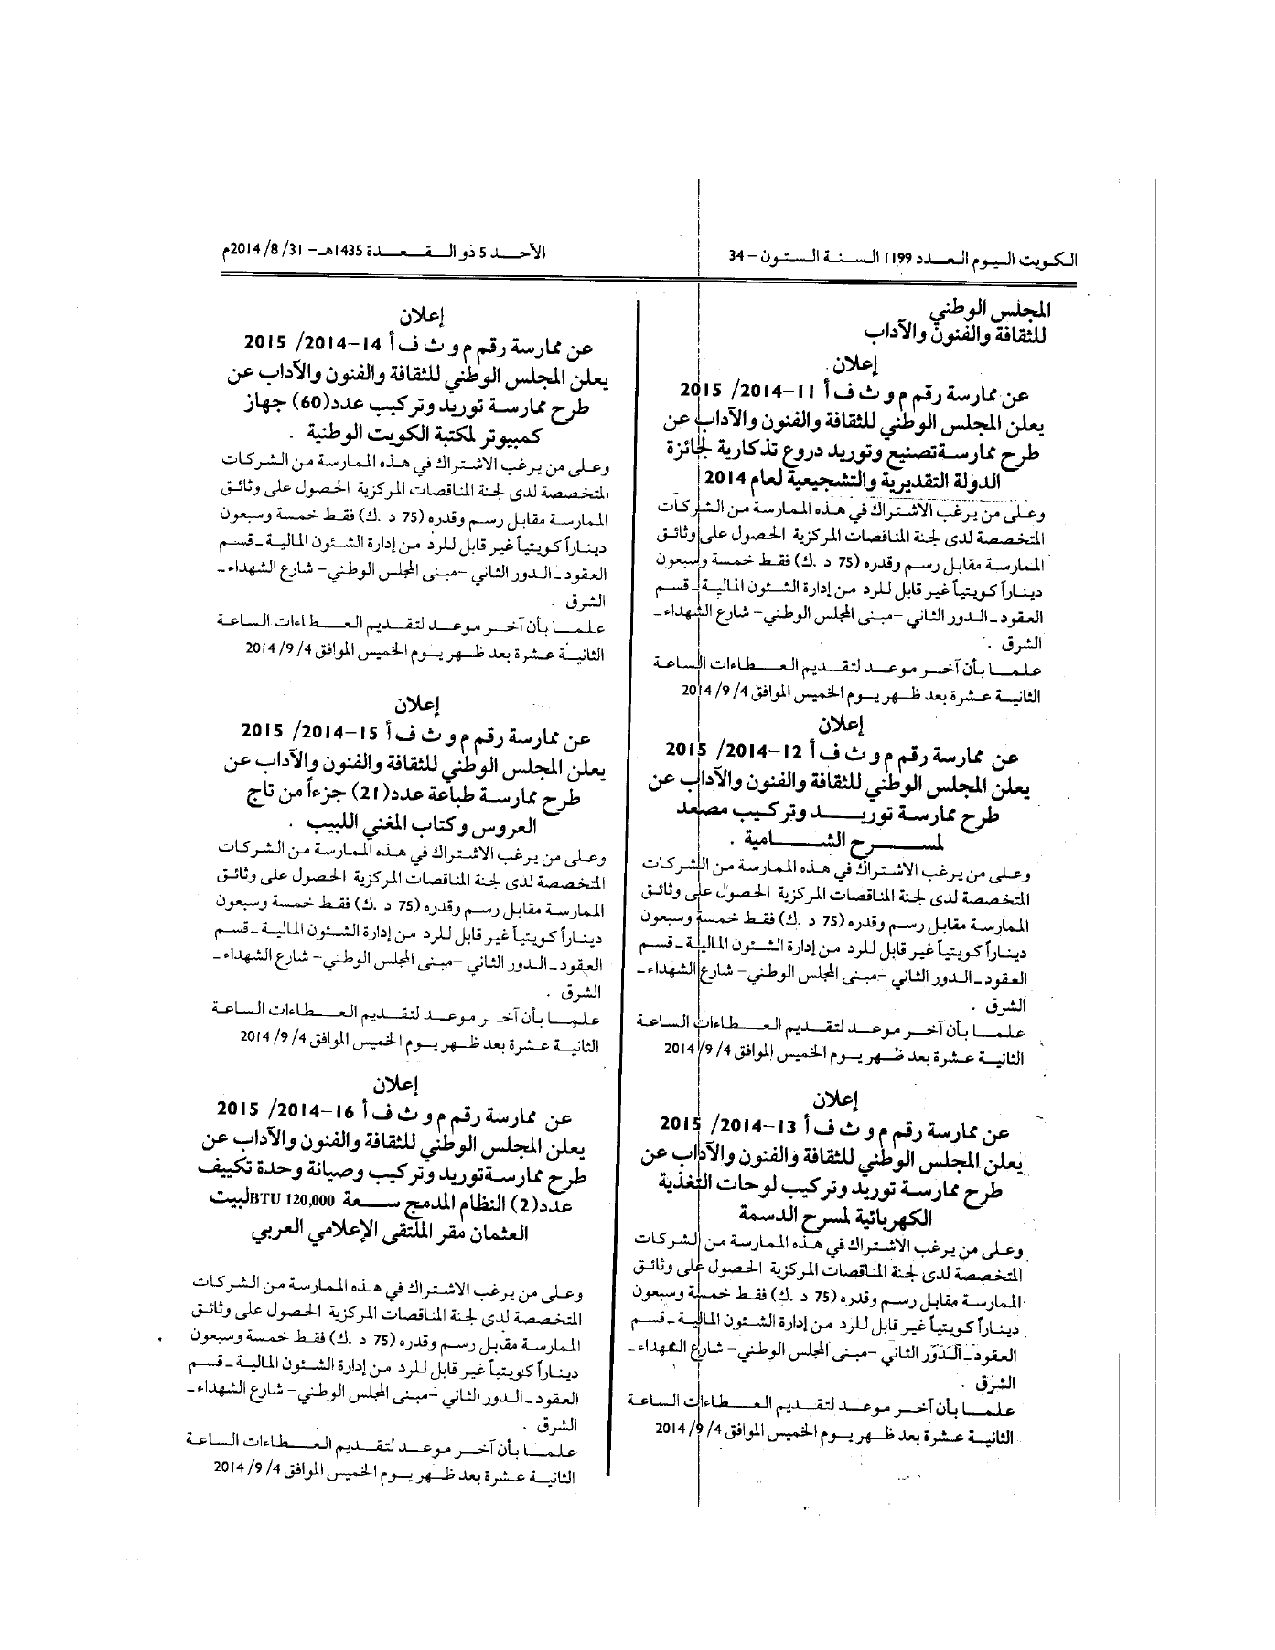 الكويت اليوم العدد 1199 السنة الستون – 34
الأحد 5 ذو القعدة 1435هـ – 31/ 8/ 2014م
المجلس الوطني
للثقافة والفنون والآداب
إعلان
عن ممارسة رقم م و ث ف أ 11-2014/ 2015
يعلن المجلس الوطني للثقافة والفنون والآداب عن
طرح ممارسة تصنيع وتوريد دروع تذكارية لجائزة
الدولة التقديرية والتشجيعية لعام 2014
وعلى من يرغب الاشتراك في هذه الممارسة من الشركات
المتخصصة لدى لجنة المناقصات المركزية الحصول على وثائق
الممارسة مقابل رسم وقدره (75 د .ك) فقط خمسة وسبعون
ديناراً كويتياً غير قابل للرد من إدارة الشئون المالية - قسم
العقود - الدور الثاني - مبنى المجلس الوطني - شارع الشهداء -
الشرق .
علما بأن آخر موعد لتقديم العطاءات الساعة
الثانية عشرة بعد ظهر يوم الخميس الموافق 4/ 9/ 2014
إعلان
عن ممارسة رقم م و ث ف أ 12-2014/ 2015
يعلن المجلس الوطني للثقافة والفنون والآداب عن
طرح ممارسة توريد وتركيب مصعد
لمسرح الشامية .
وعلى من يرغب الاشتراك في هذه الممارسة من الشركات
المتخصصة لدى لجنة المناقصات المركزية الحصول على وثائق
الممارسة مقابل رسم وقدره (75 د .ك) فقط خمسة وسبعون
ديناراً كويتياً غير قابل للرد من إدارة الشئون المالية - قسم
العقود - الدور الثاني - مبنى المجلس الوطني - شارع الشهداء -
الشرق .
علما بأن آخر موعد لتقديم العطاءات الساعة
الثانية عشرة بعد ظهر يوم الخميس الموافق 4/ 9/ 2014
إعلان
عن ممارسة رقم م و ث ف أ 13-2014/ 2015
يعلن المجلس الوطني للثقافة والفنون والآداب عن
طرح ممارسة توريد وتركيب لوحات التغذية
الكهربائية لمسرح الدسمة
وعلى من يرغب الاشتراك في هذه الممارسة من الشركات
المتخصصة لدى لجنة المناقصات المركزية الحصول على وثائق
الممارسة مقابل رسم وقدره (75 د .ك) فقط خمسة وسبعون
ديناراً كويتياً غير قابل للرد من إدارة الشئون المالية - قسم
العقود - الدور الثاني - مبنى المجلس الوطني - شارع الشهداء -
الشرق .
علما بأن آخر موعد لتقديم العطاءات الساعة
الثانية عشرة بعد ظهر يوم الخميس الموافق 4/ 9/ 2014
إعلان
عن ممارسة رقم م و ث ف أ 14-2014/ 2015
يعلن المجلس الوطني للثقافة والفنون والآداب عن
طرح ممارسة توريد وتركيب عدد(60) جهاز
كمبيوتر لمكتبة الكويت الوطنية .
وعلى من يرغب الاشتراك في هذه الممارسة من الشركات
المتخصصة لدى لجنة المناقصات المركزية الحصول على وثائق
الممارسة مقابل رسم وقدره (75 د .ك) فقط خمسة وسبعون
ديناراً كويتياً غير قابل للرد من إدارة الشئون المالية - قسم
العقود - الدور الثاني - مبنى المجلس الوطني - شارع الشهداء -
الشرق .
علما بأن آخر موعد لتقديم العطاءات الساعة
الثانية عشرة بعد ظهر يوم الخميس الموافق 4/ 9/ 2014
إعلان
عن ممارسة رقم م و ث ف أ 15-2014/ 2015
يعلن المجلس الوطني للثقافة والفنون والآداب عن
طرح ممارسة طباعة عدد(21) جزءاً من تاج
العروس وكتاب المغني اللبيب .
وعلى من يرغب الاشتراك في هذه الممارسة من الشركات
المتخصصة لدى لجنة المناقصات المركزية الحصول على وثائق
الممارسة مقابل رسم وقدره (75 د .ك) فقط خمسة وسبعون
ديناراً كويتياً غير قابل للرد من إدارة الشئون المالية - قسم
العقود - الدور الثاني - مبنى المجلس الوطني - شارع الشهداء -
الشرق .
علما بأن آخر موعد لتقديم العطاءات الساعة
الثانية عشرة بعد ظهر يوم الخميس الموافق 4/ 9/ 2014
إعلان
عن ممارسة رقم م و ث ف أ 16-2014/ 2015
يعلن المجلس الوطني للثقافة والفنون والآداب عن
طرح ممارسة توريد وتركيب وصيانة وحدة تكييف
عدد(2) النظام المدمج سعة BTU 120,000 لبيت
العثمان مقر الملتقى الإعلامي العربي
وعلى من يرغب الاشتراك في هذه الممارسة من الشركات
المتخصصة لدى لجنة المناقصات المركزية الحصول على وثائق
الممارسة مقابل رسم وقدره (75 د .ك) فقط خمسة وسبعون
ديناراً كويتياً غير قابل للرد من إدارة الشئون المالية - قسم
العقود - الدور الثاني - مبنى المجلس الوطني - شارع الشهداء -
الشرق .
علما بأن آخر موعد لتقديم العطاءات الساعة
الثانية عشرة بعد ظهر يوم الخميس الموافق 4/ 9/ 2014